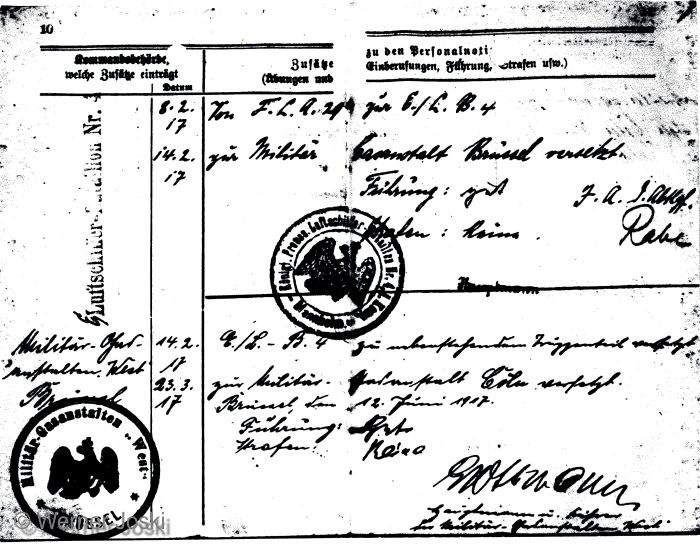 10
Kommandobehörde,
welche Zusätze einträgt
Datum
Zusätze
(Übungen und
zu den Personalnoti
Einberufungen, Führung, Strafen usw.)
E/Luftschiffer-Bataillon Nr. 4
8.2.
17
Von F.L.A. 29 zur E./L. B. 4
14.2.
17
zur Militär Gasanstalt Brüssel versetzt.
Führung: gut
Strafen: Keine.
J. A. d. Abtlg.
Rabe
Hauptmann
Königl. Preuss. Luftschiffer-Bataillon Nr. 4
Mannheim
Militär-Gas-
anstalten, West
Brüssel
14.2.
17
E./L.-B. 4 zu nebenstehendem Truppenteil versetzt
23.3.
17
zur Militär-Gasanstalt Cöln versetzt.
Brüssel, den 12. Juni 1917.
Führung: Gut
Strafen: Keine
Hauptmann u.
der Militär-Gasanstalten West
Militär-Gasanstalten "West"
BRÜSSEL
© Werner Joski